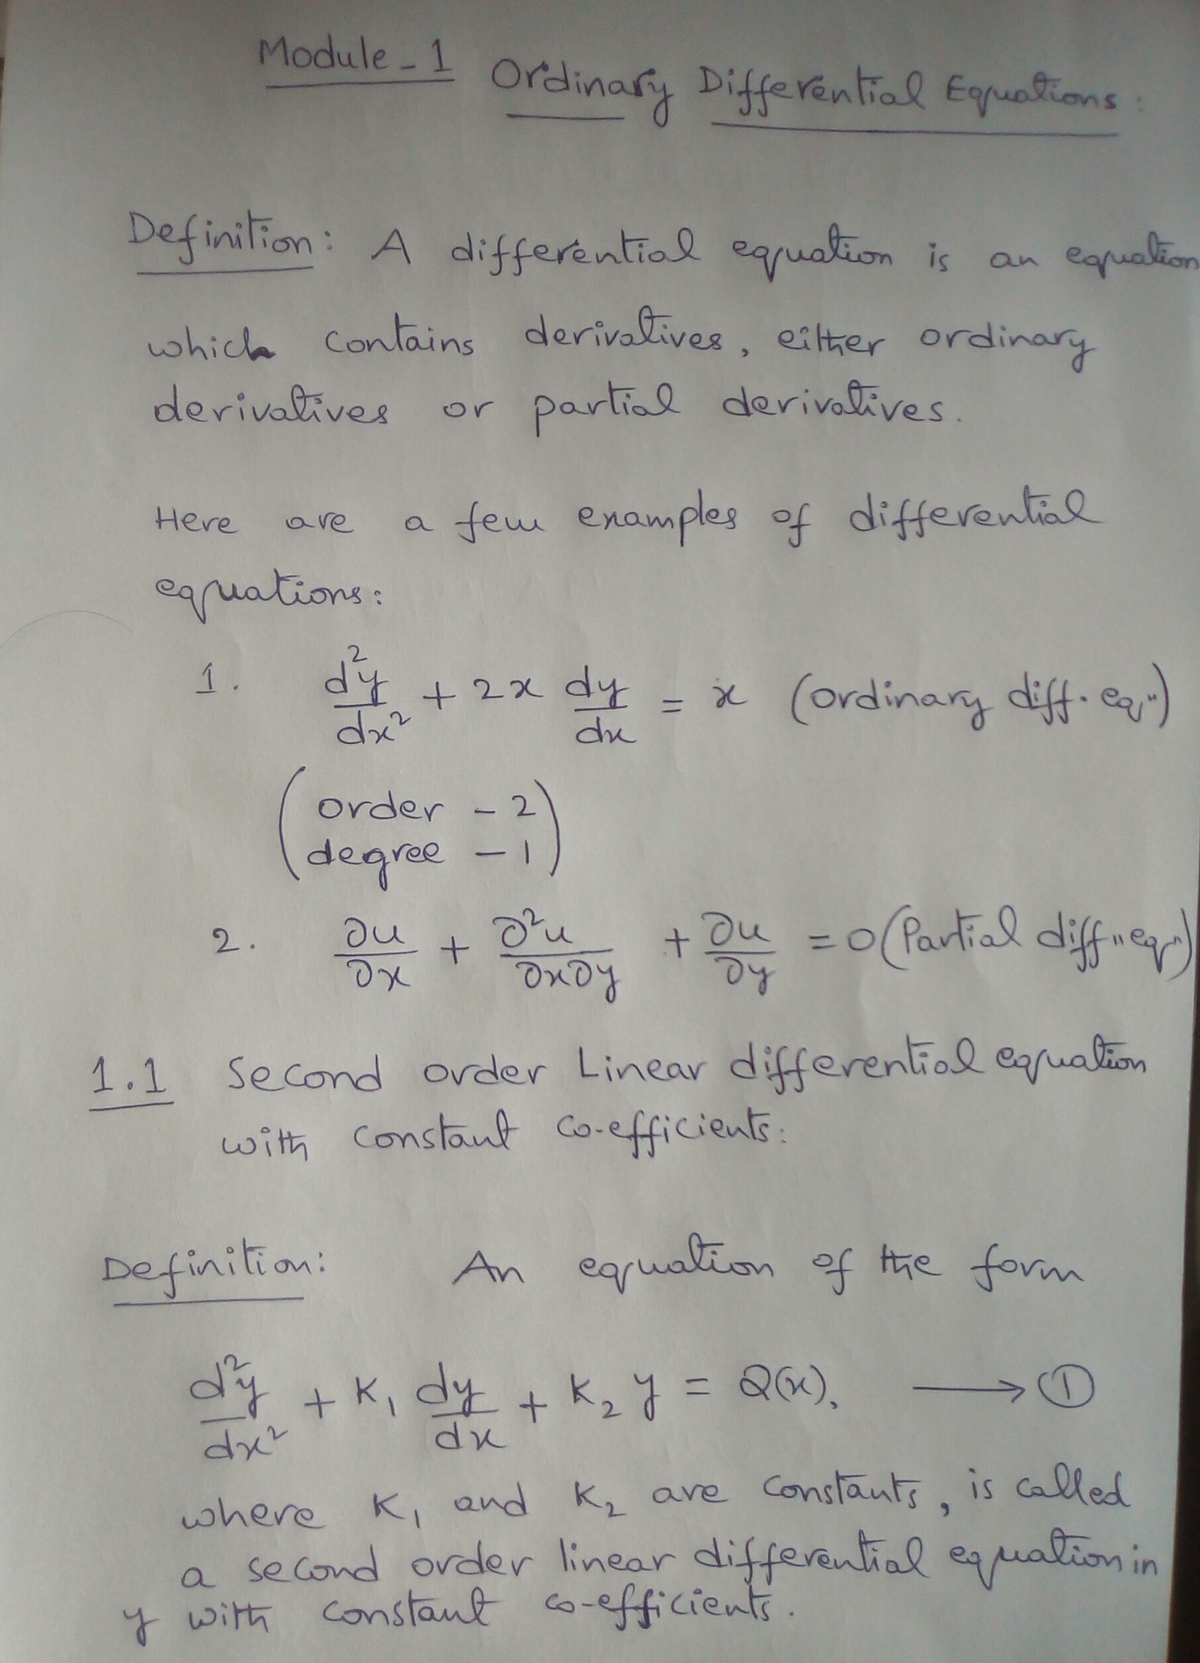 Module - 1 Ordinary Differential Equations:
Definition: A differential equation is an equation
which contains derivatives, either ordinary
derivatives or partial derivatives.
Here are a few examples of differential
equations:
1. d²y/dx² + 2x dy/dx = x (ordinary diff. eqⁿ)
(order - 2
degree - 1)
2. ∂u/∂x + ∂²u/∂x∂y + ∂u/∂y = 0 (Partial diffⁿ eqⁿ)
1.1 Second order Linear differential equation
with constant co-efficients:
Definition: An equation of the form
d²y/dx² + K₁ dy/dx + K₂ y = Q(x). → ①
where K₁ and K₂ are constants, is called
a second order linear differential equation in
y with constant co-efficients.